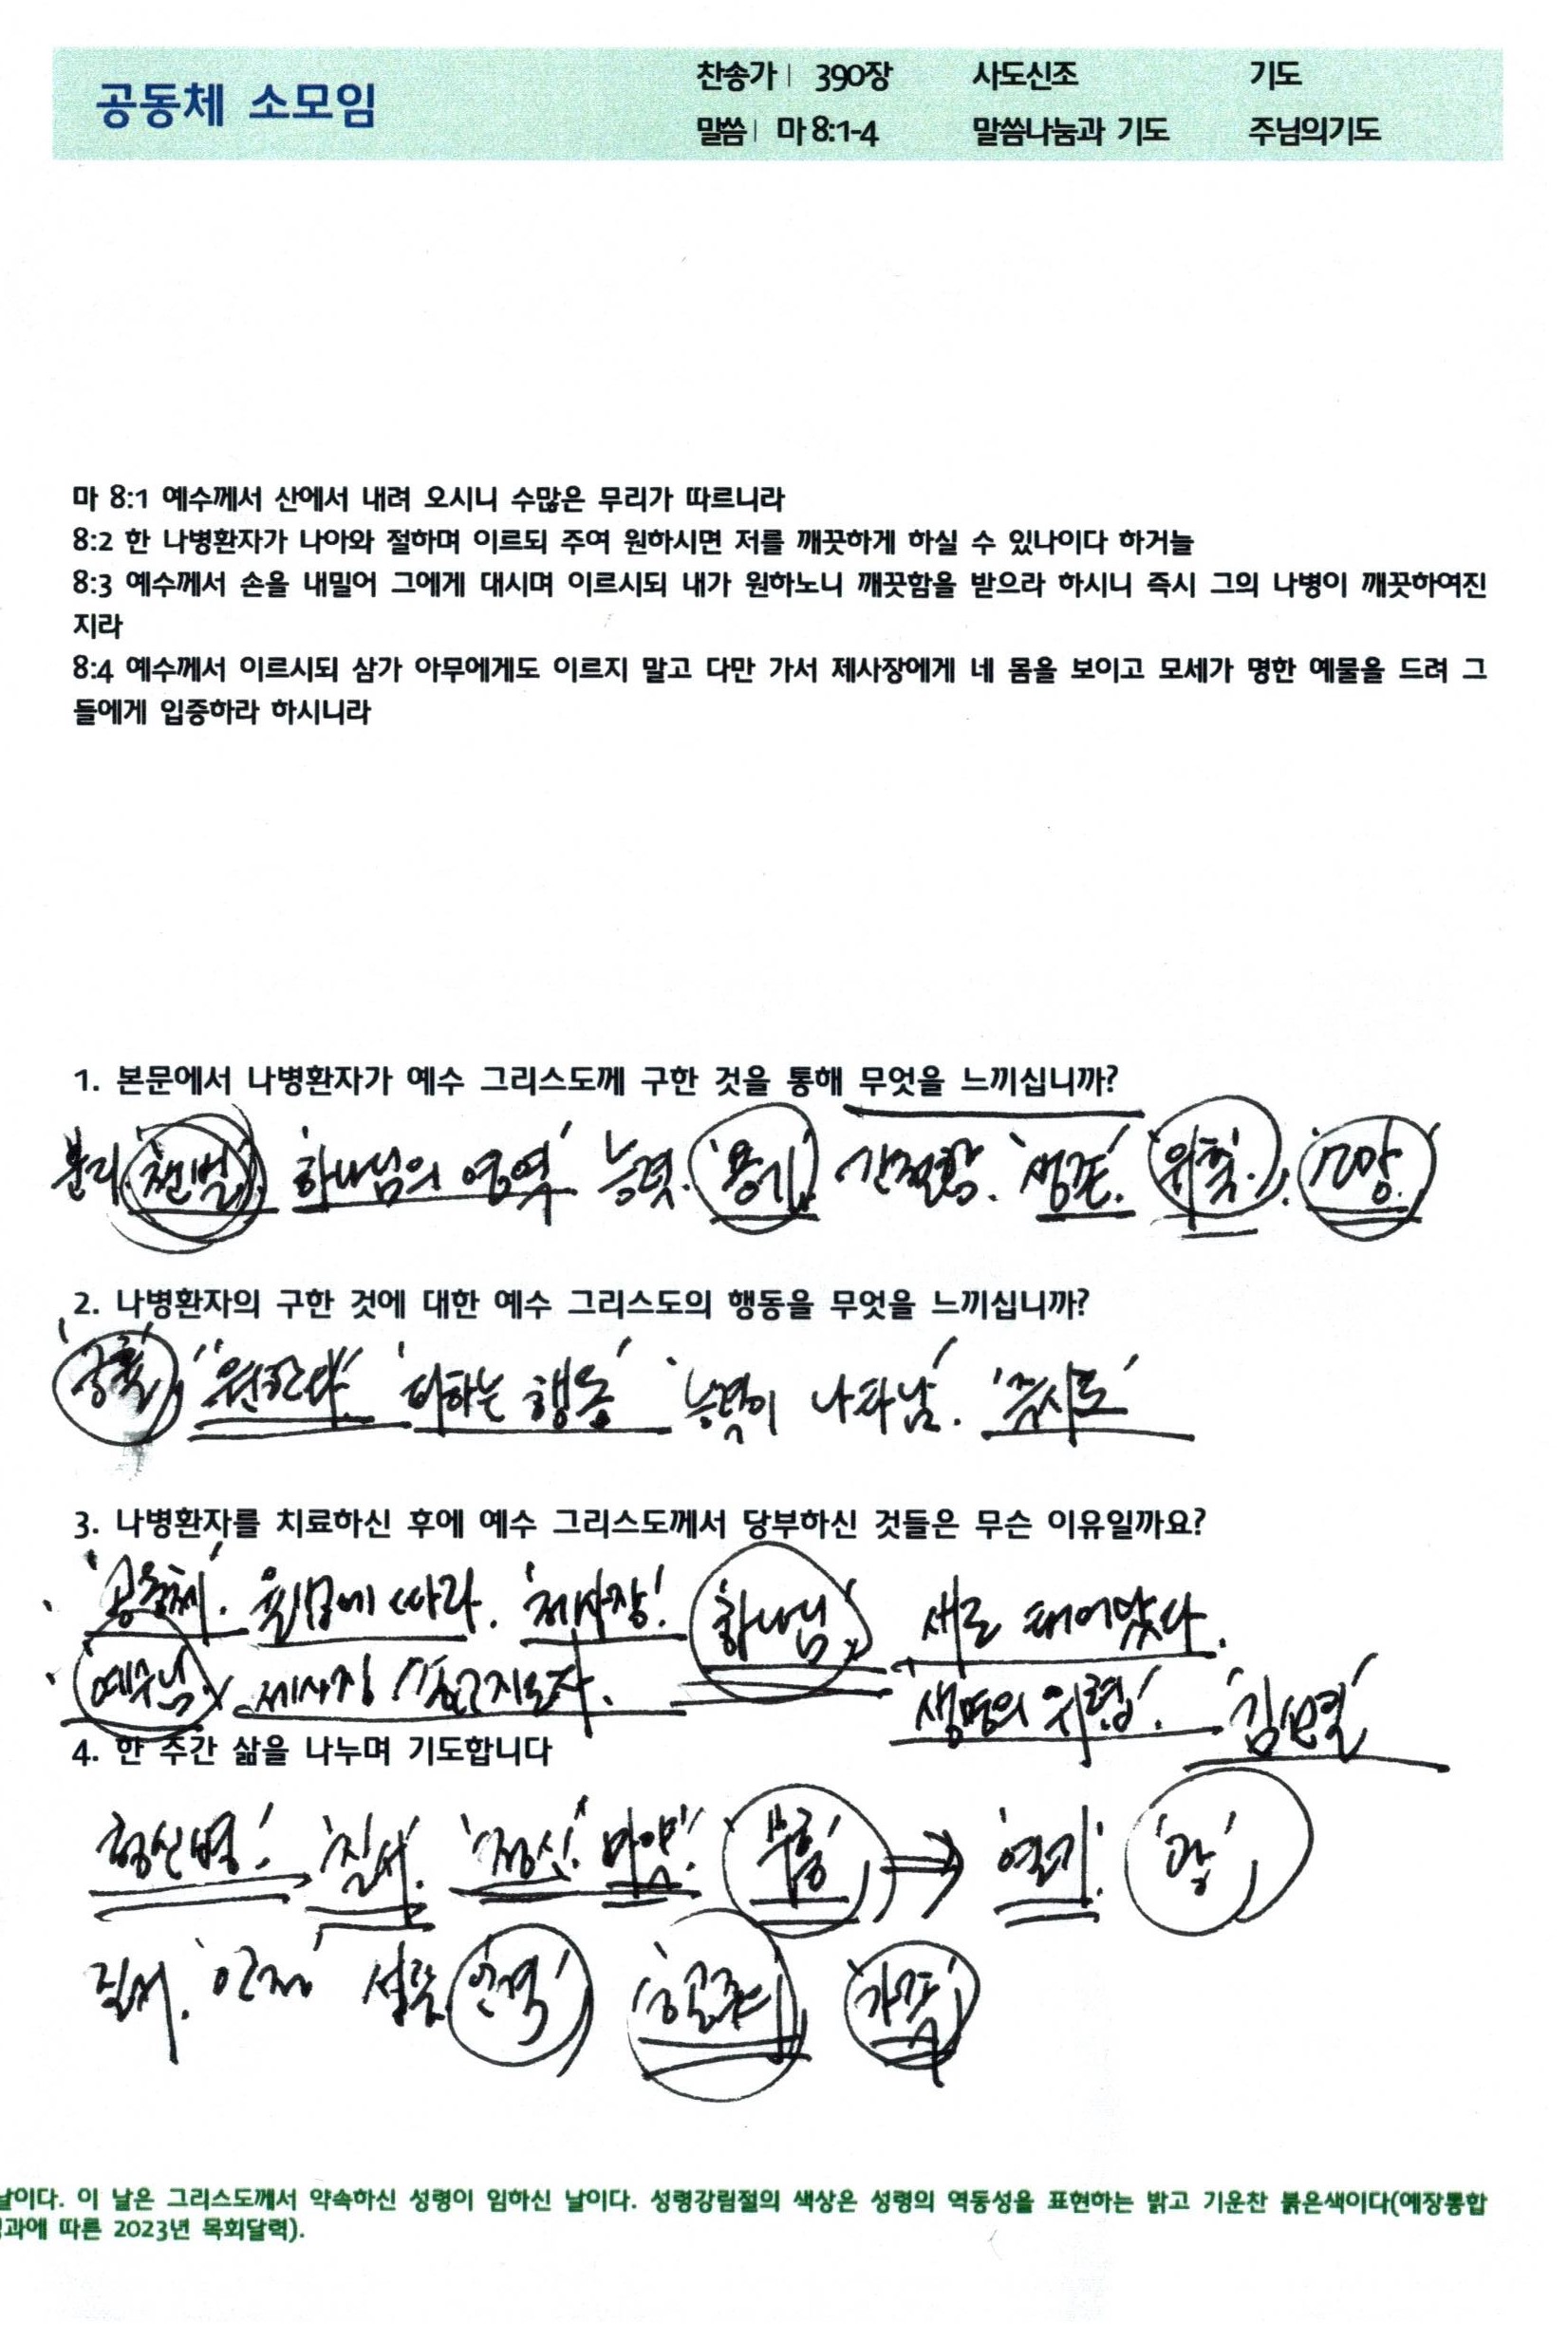 공동체 소모임
찬송가 | 390장 사도신조 기도
말씀 | 마 8:1-4 말씀나눔과 기도 주님의기도
마 8:1 예수께서 산에서 내려 오시니 수많은 무리가 따르니라
8:2 한 나병환자가 나아와 절하며 이르되 주여 원하시면 저를 깨끗하게 하실 수 있나이다 하거늘
8:3 예수께서 손을 내밀어 그에게 대시며 이르시되 내가 원하노니 깨끗함을 받으라 하시니 즉시 그의 나병이 깨끗하여진
지라
8:4 예수께서 이르시되 삼가 아무에게도 이르지 말고 다만 가서 제사장에게 네 몸을 보이고 모세가 명한 예물을 드려 그
들에게 입증하라 하시니라
1. 본문에서 나병환자가 예수 그리스도께 구한 것을 통해 무엇을 느끼십니까?
분리. '천벌'. '하나님의 영역' 능력. '용기'. 간절함. '생존'. '위축'.
2. 나병환자의 구한 것에 대한 예수 그리스도의 행동을 무엇을 느끼십니까?
'긍휼' "원한다" 행동' '능력이 나타남'. '즉시로'
3. 나병환자를 치료하신 후에 예수 그리스도께서 당부하신 것들은 무슨 이유일까요?
'공동체'. 율법에 따라. '제사장' '하나님' 새로 태어났다.
'예수님' 제사장 / 종교지도자. 생명의 위협!
4. 한 주간 삶을 나누며 기도합니다
'정신' '마음' '부흥' ⇒ '열기'
질서. '안정' '인격'
날이다. 이 날은 그리스도께서 약속하신 성령이 임하신 날이다. 성령강림절의 색상은 성령의 역동성을 표현하는 밝고 기운찬 붉은색이다(예장통합
과에 따른 2023년 목회달력).